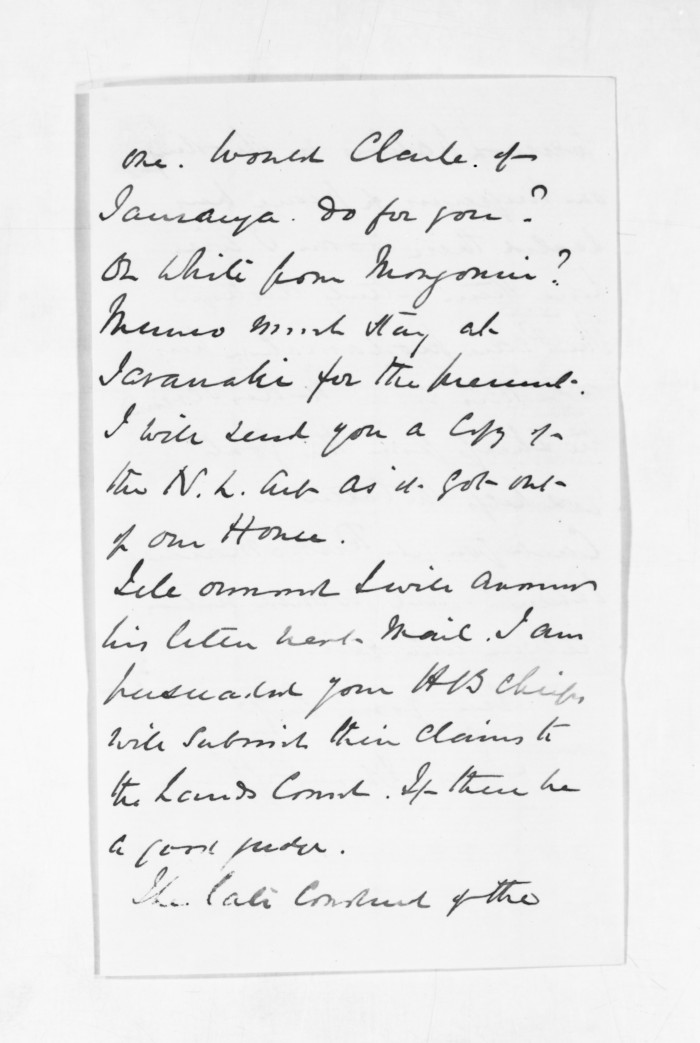 one. Would Clarke. of
Tauranga. do for you?
Or White from Mongonui?
Munro must stay at
Taranaki for the present.
I will send you a Copy of
the N. L. Act as it got out
of our House.
Tell Ormond I will answer
his letter next Mail. I am
persuaded your HB Chiefs
will submit their claims to
the Lands Court. If there be
a good judge.
The late Conduct of the